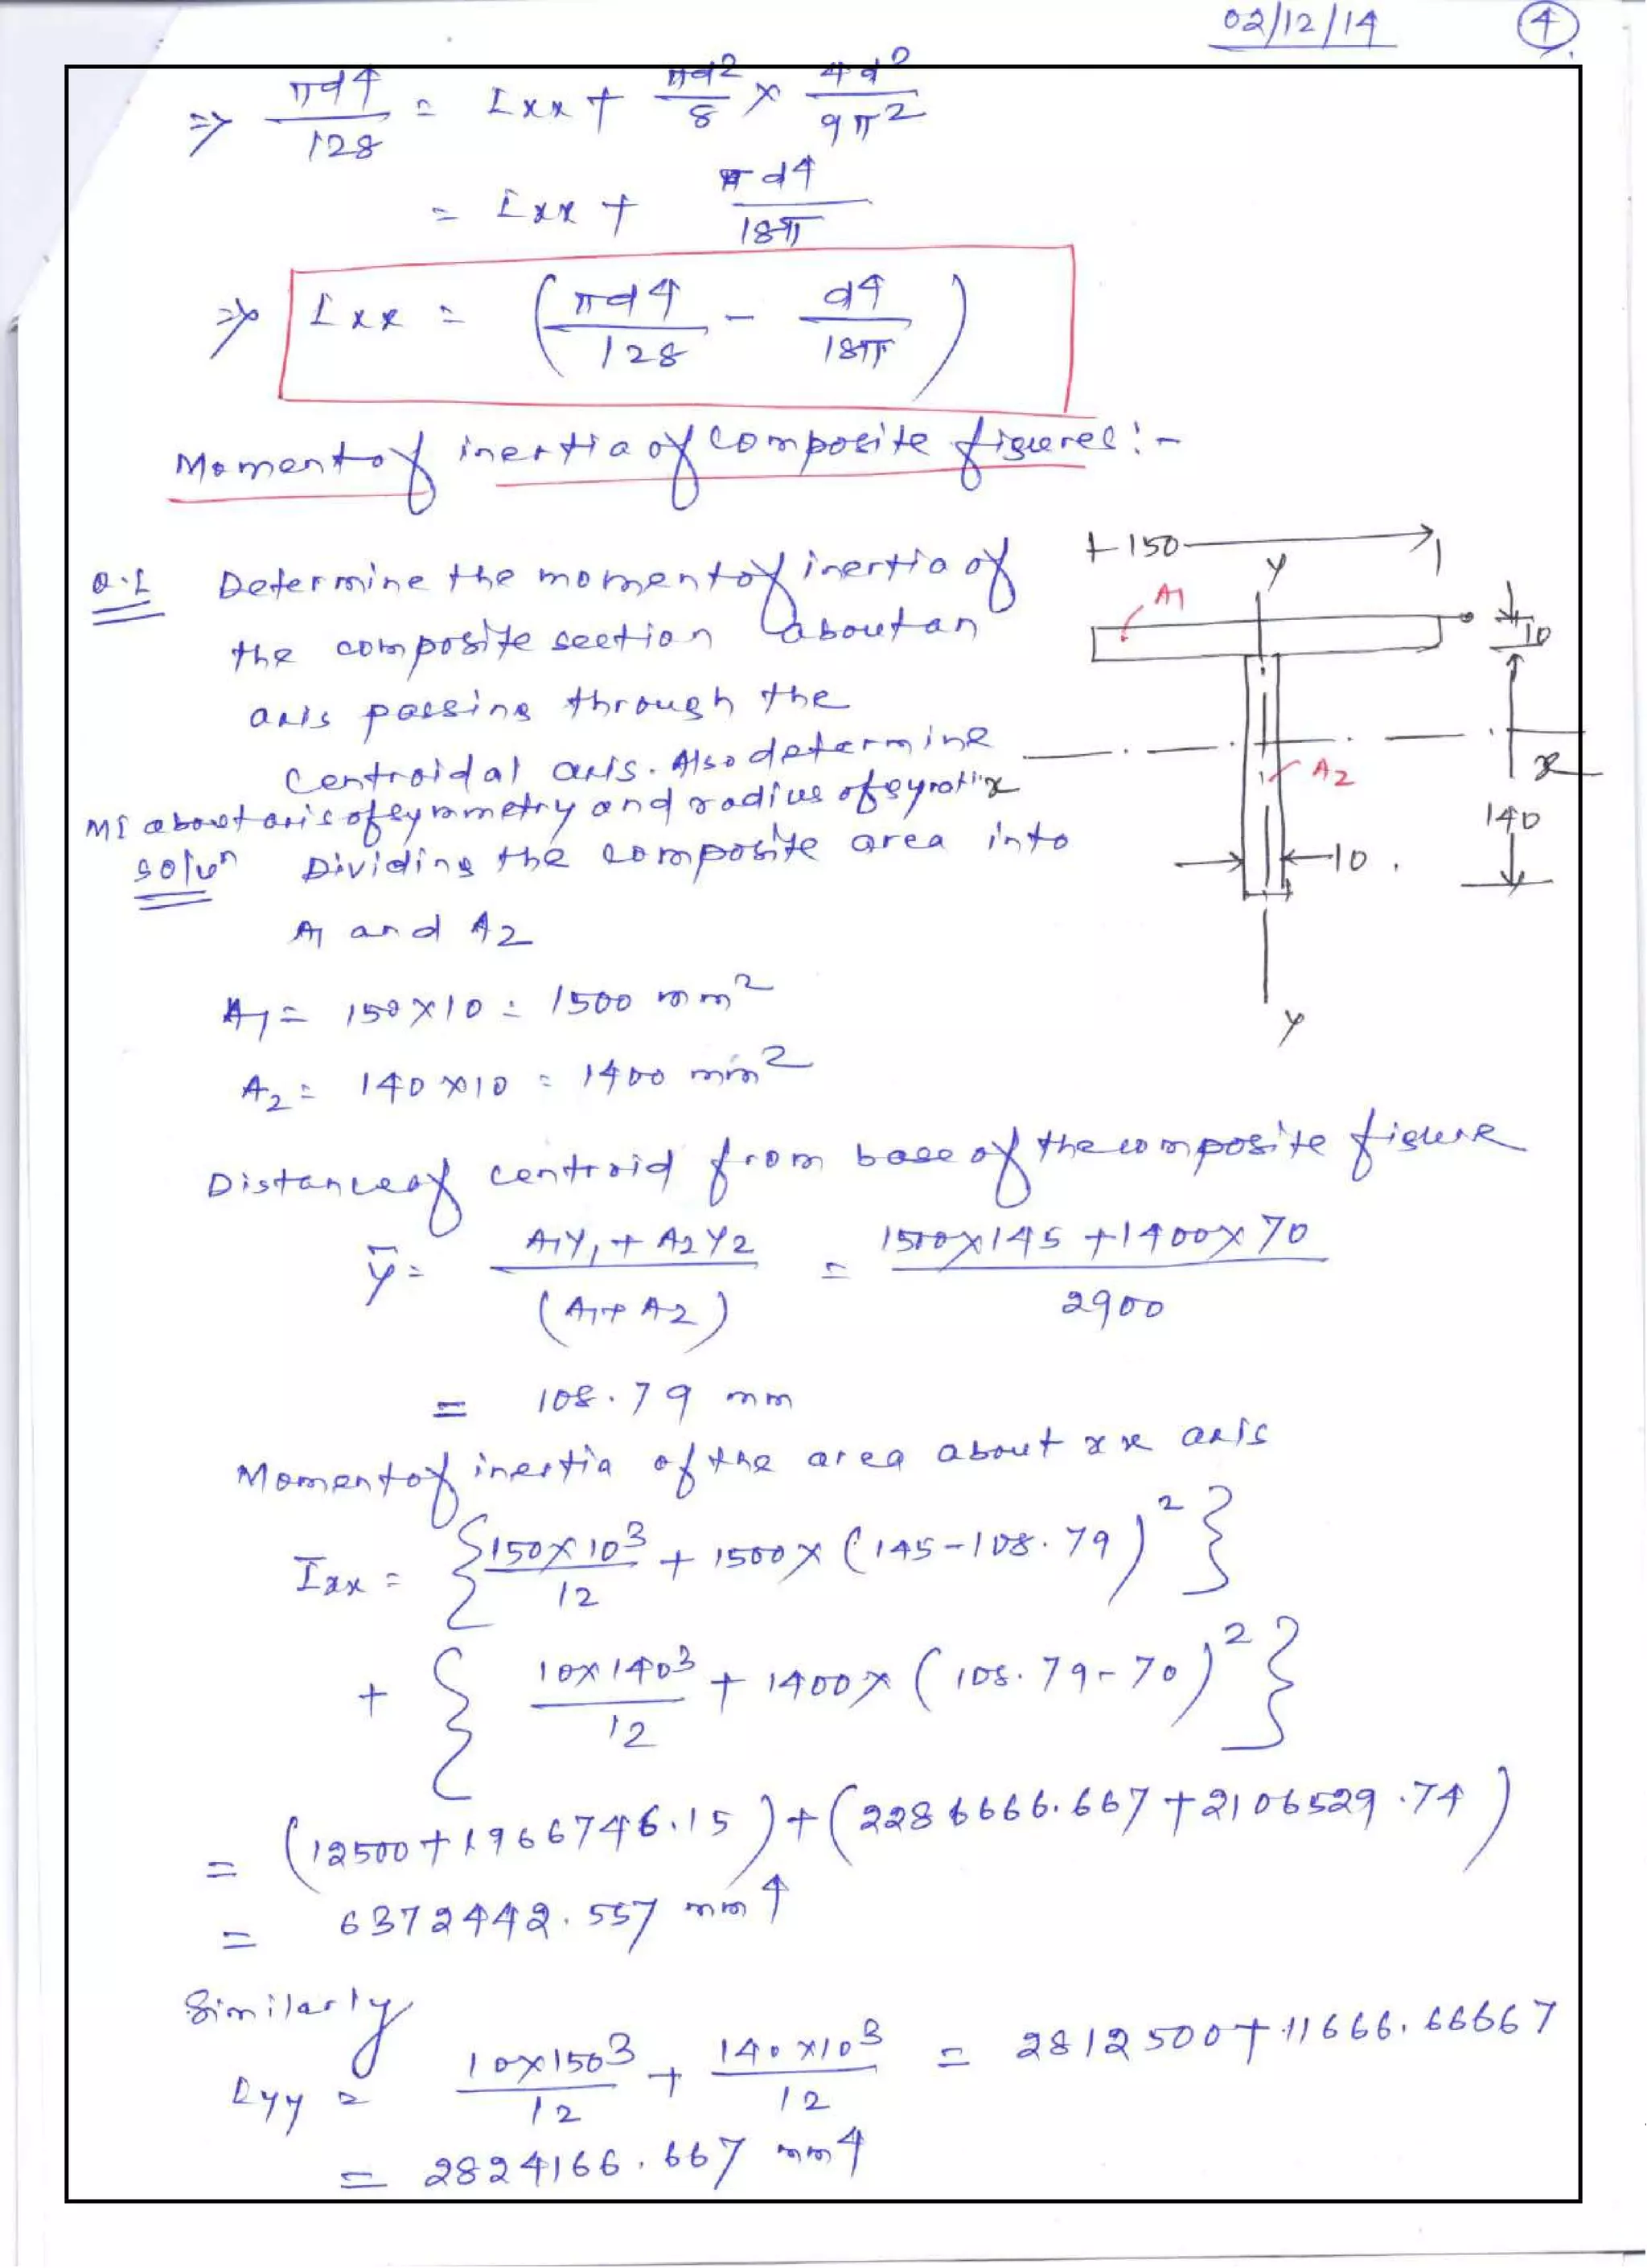 02/12/14 4
⇒ πd4/128 = Ixx + πd2/8 × 4d2/9π2
= Ixx + πd4/18π
⇒ Ixx = (πd4/128 - d4/18π)
Moment of inertia of composite figures:-
Q.1 Determine the moment of inertia of
the composite section about an
axis passing through the
centroidal axis. Also determine
MI about axis of symmetry and radius of gyration
Soluⁿ Dividing the composite area into
A1 and A2
150
Y
A1
10
X
A2
140
10
Y
A1 = 150×10 = 1500 mm2
A2 = 140×10 = 1400 mm2
Distance of centroid from base of the composite figure
ȳ = A1Y1 + A2Y2/(A1+A2) = 1500×145 + 1400×70/2900
= 108.79 mm
Moment of inertia of the area about xx axis
Ixx = {150×10³/12 + 1500×(145-108.79)²}
+ {10×140³/12 + 1400×(108.79-70)²}
= (12500+1966746.15)+(2286666.667+2106529.74)
= 6372442.557 mm4
Similarly
Iyy = 10×150³/12 + 140×10³/12 = 2812500+11666.66667
= 2824166.667 mm4